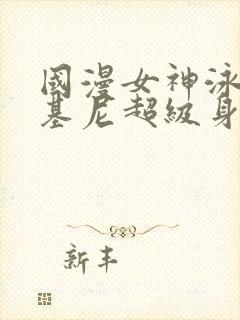 國漫女神泳
基尼超級身
新丰